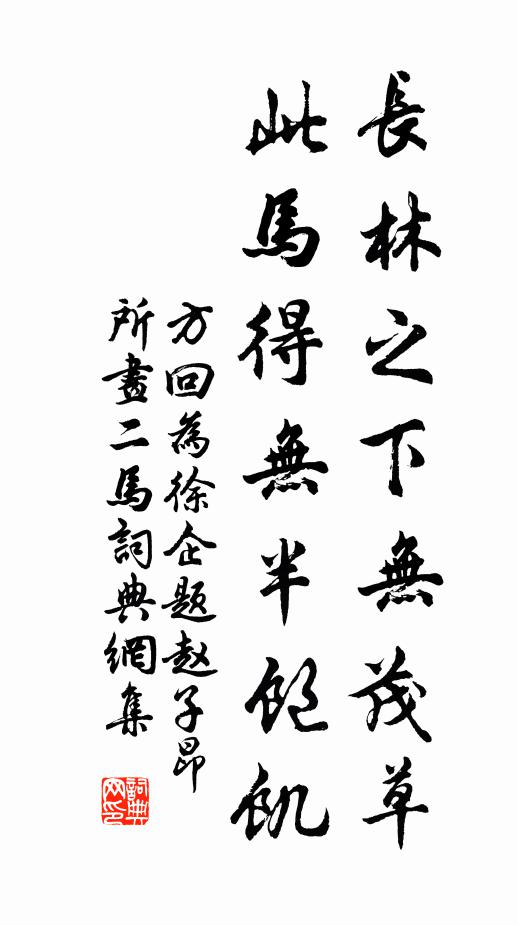 長林之下無茂草
此馬得無半飽飢
方回為徐企题赵子昂
所畫二馬詞典網集
詞典
网印